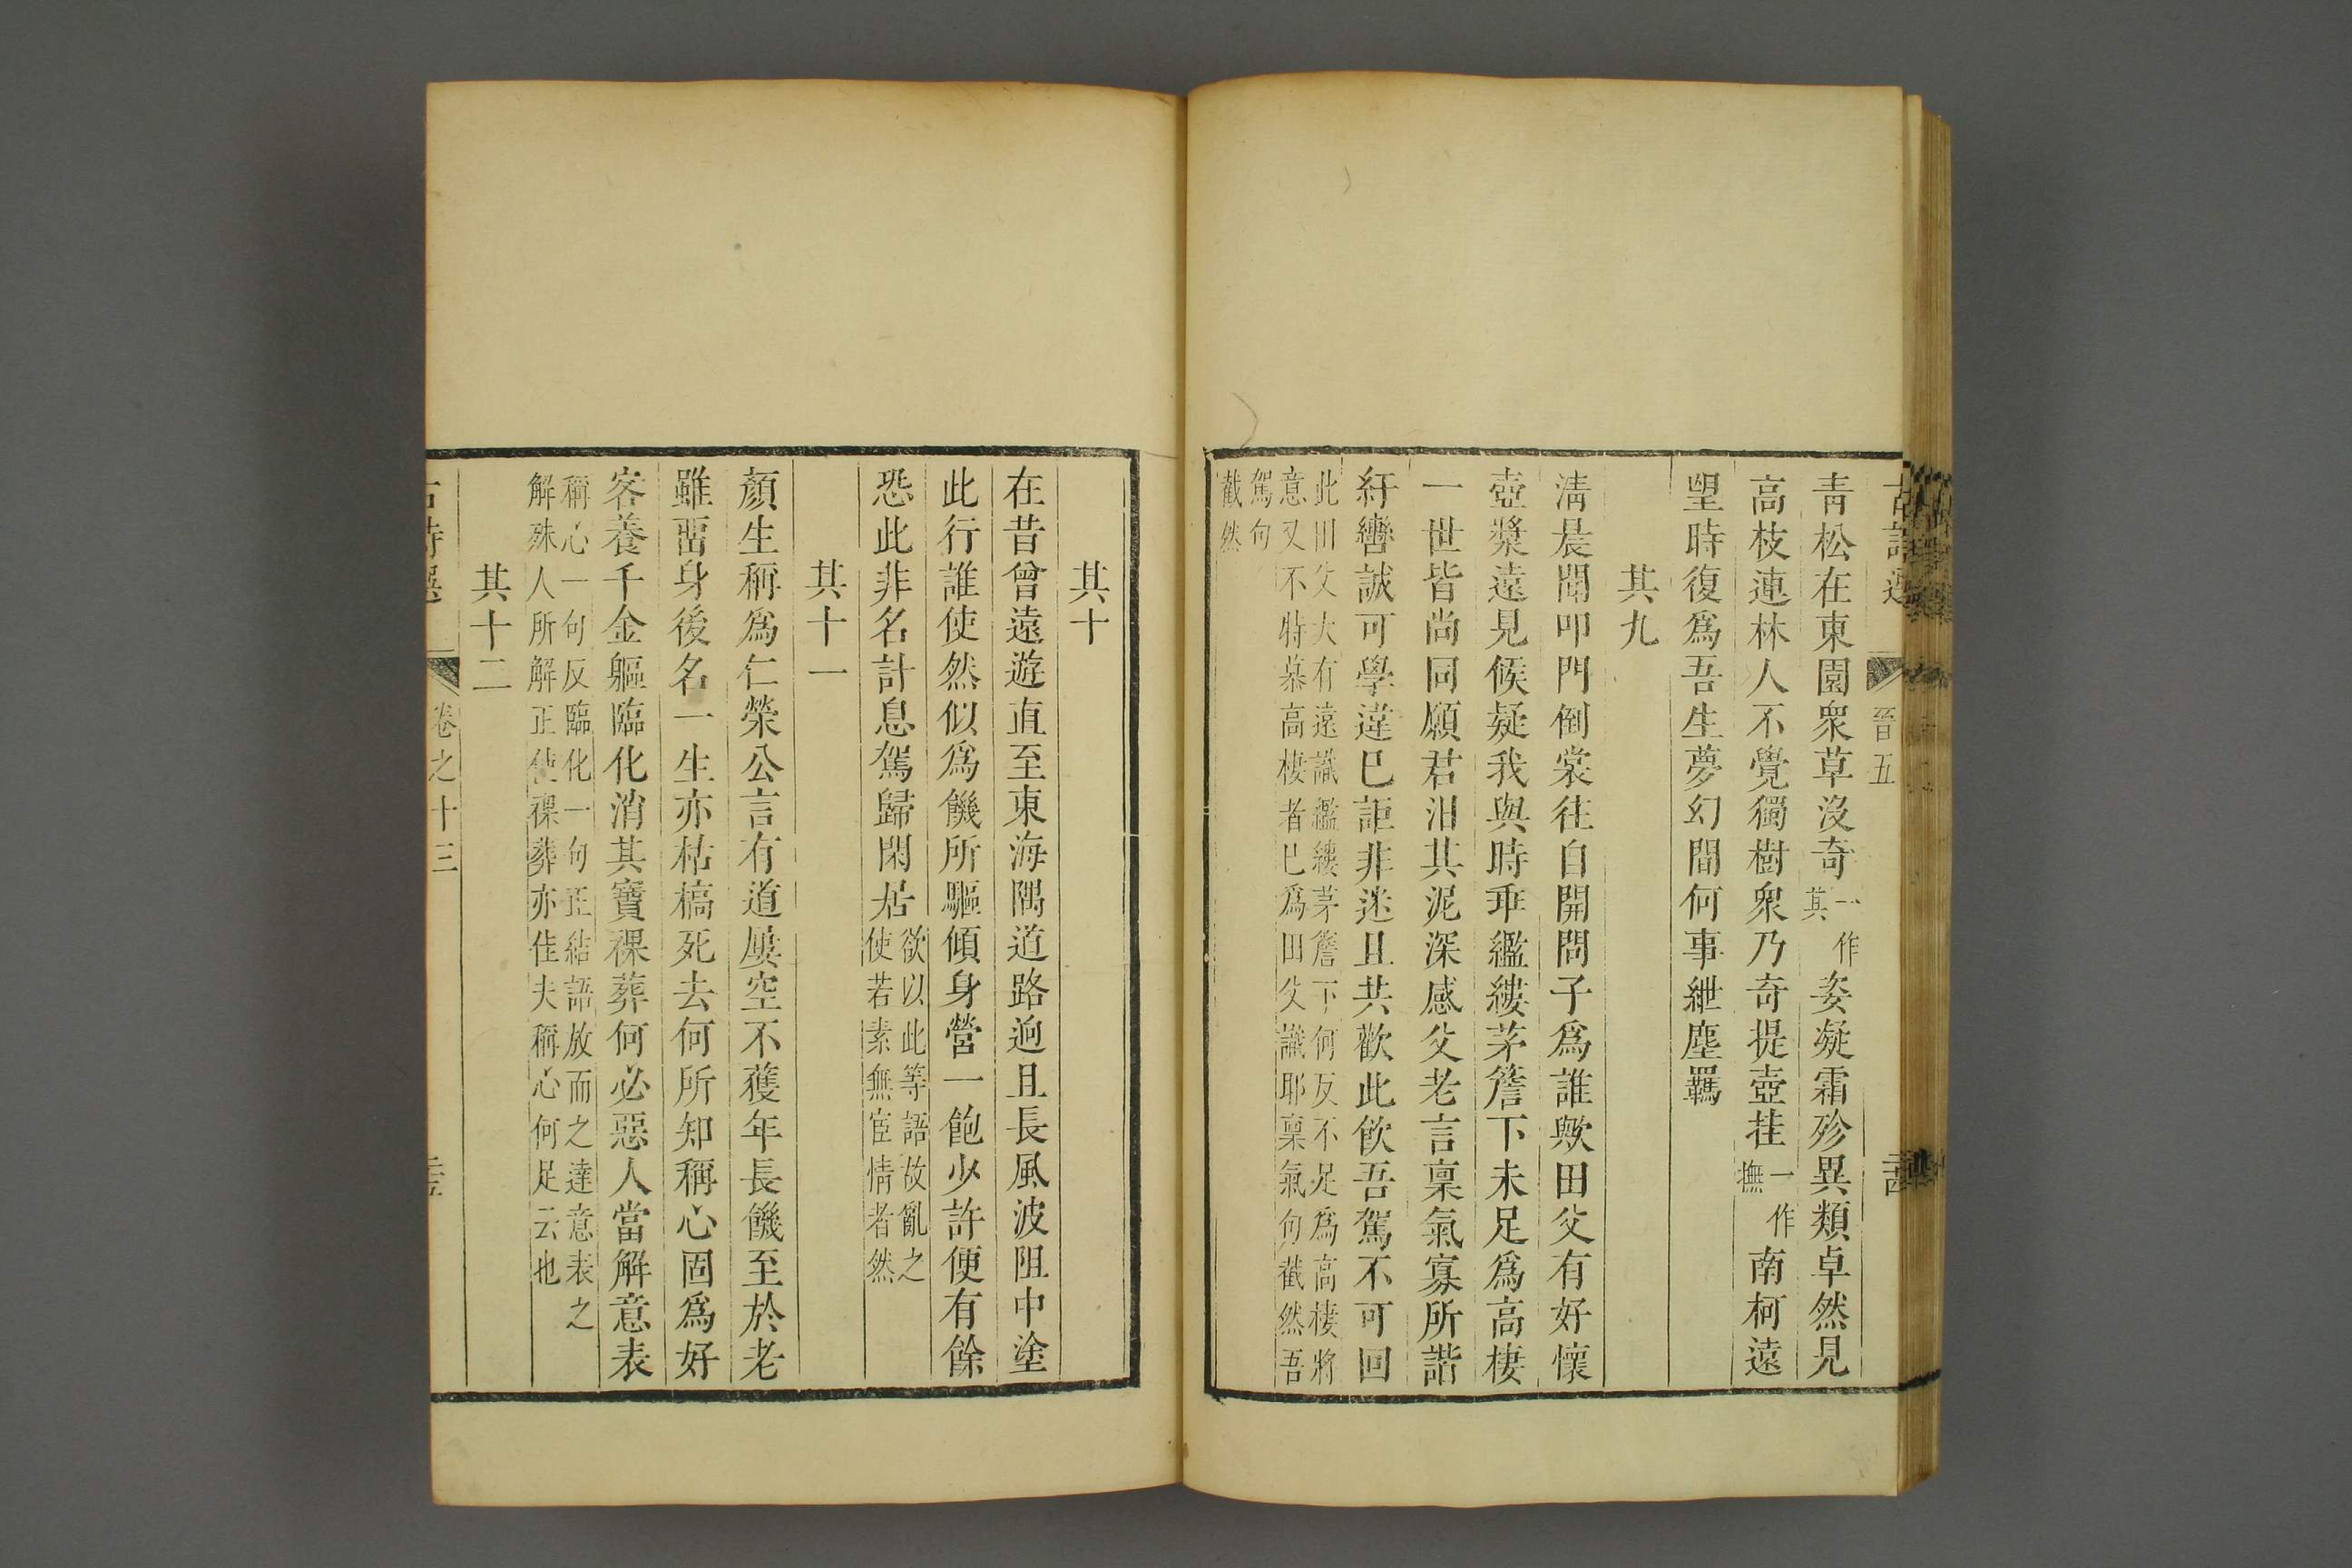 晉五
青松在東園衆草沒奇一作其姿凝霜殄異類卓然見
高枝連林人不覺獨樹衆乃奇提壺挂一作撫南柯遠
望時復爲吾生夢幻間何事紲塵羈
其九
淸晨聞叩門倒裳往自開問子爲誰歟田父有好懷
壺漿遠見候疑我與時乖繿縷茅簷下未足爲高棲
一世皆尚同願君汩其泥深感父老言稟氣寡所諧
紆轡誠可學違已詎非迷且共歡此飲吾駕不可回
此田父大有遠識繿縷茅簷下何反不足爲高棲將
意又不特慕高棲者已爲田父識耶稟氣句截然吾
駕句
截然
其十
在昔曾遠遊直至東海隅道路逈且長風波阻中塗
此行誰使然似爲饑所驅傾身營一飽少許便有餘
恐此非名計息駕歸閑居
欲以此等語故亂之
使若素無宦情者然
其十一
顏生稱爲仁榮公言有道屢空不獲年長饑至於老
雖畱身後名一生亦枯槁死去何所知稱心固爲好
客養千金軀臨化消其寶祼葬何必惡人當解意表
稱心一句反臨化一句正結語放而之達意表之
解殊人所解正使祼葬亦佳夫稱心何足云也
其十二
古詩選 卷之十三